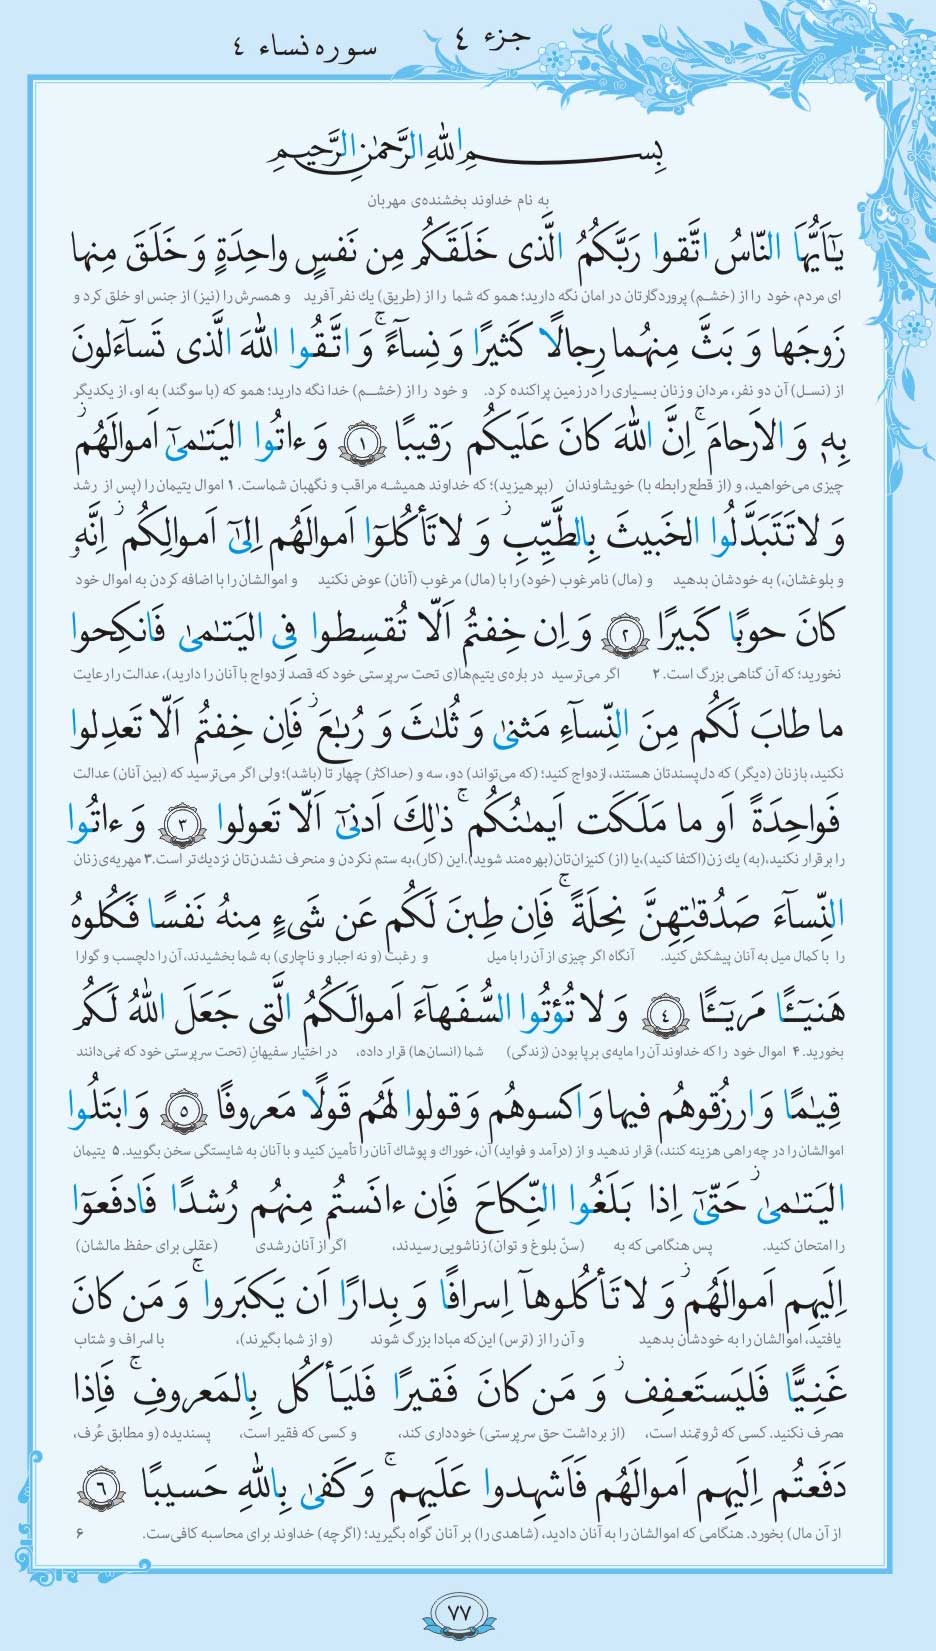 جزء ٤
سوره نساء ٤
بِسمِ اللهِ الرَّحمٰنِ الرَّحیمِ
به نام خداوند بخشنده‌ی مهربان
یٰٓاَیُّهَا النّاسُ اتَّقوا رَبَّکُمُ الَّذی خَلَقَکُم مِن نَفسٍ واحِدَةٍ وَ خَلَقَ مِنها
ای مردم، خود را از (خشم) پروردگارتان در امان نگه دارید؛ همو که شما را از (طریق) یك نفر آفرید و همسرش را (نیز) از جنس او خلق کرد و
زَوجَها وَ بَثَّ مِنهُما رِجالًا کَثیرًا وَ نِسآءًۚ وَ اتَّقُوا اللهَ الَّذی تَسآءَلونَ
از (نسل) آن دو نفر، مردان و زنان بسیاری را در زمین پراکنده کرد. و خود را از (خشم) خدا نگه دارید؛ همو که (با سوگند) به او، از یکدیگر
بِهٖ وَ الاَرحامَۚ اِنَّ اللهَ کانَ عَلَیکُم رَقیبًا ١ وَ ءاتُوا الیَتٰمیٰٓ اَموالَهُمۖ
چیزی می‌خواهید، و (از قطع رابطه با) خویشاوندان (بپرهیزید)؛ که خداوند همیشه مراقب و نگهبان شماست. ١ اموال یتیمان را (پس از رشد
وَ لا تَتَبَدَّلُوا الخَبیثَ بِالطَّیِّبِۖ وَ لا تَأکُلوٓا اَموالَهُم اِلیٰٓ اَموالِکُمۖ اِنَّهٗ
و بلوغشان،) به خودشان بدهید و (مال) نامرغوب (خود) را با (مال) مرغوب (آنان) عوض نکنید و اموالشان را با اضافه کردن به اموال خود
کانَ حوبًا کَبیرًا ٢ وَ اِن خِفتُم اَلّا تُقسِطوا فِی الیَتٰمیٰ فَانکِحوا
نخورید؛ که آن گناهی بزرگ است. ٢ اگر می‌ترسید در باره‌ی یتیم‌ها(ی تحت سرپرستی خود که قصد ازدواج با آنان را دارید)، عدالت را رعایت
ما طابَ لَکُم مِنَ النِّسآءِ مَثنیٰ وَ ثُلاثَ وَ رُبٰعَۖ فَاِن خِفتُم اَلّا تَعدِلوا
نکنید، با زنان (دیگر) که دل‌پسندتان هستند، ازدواج کنید؛ (که می‌تواند) دو، سه و (حداکثر) چهار تا (باشد)؛ ولی اگر می‌ترسید که (بین آنان) عدالت
فَواحِدَةً اَو ما مَلَکَت اَیمٰنُکُمۚ ذٰلِكَ اَدنیٰٓ اَلّا تَعولوا ٣ وَ ءاتُوا
را برقرار نکنید، (به) یك زن (اکتفا کنید)، یا (از) کنیزان‌تان (بهره‌مند شوید). این (کار)، به ستم نکردن و منحرف نشدن‌تان نزدیك‌تر است. ٣ مهریه‌ی زنان
النِّسآءَ صَدُقٰتِهِنَّ نِحلَةًۚ فَاِن طِبنَ لَکُم عَن شَیءٍ مِنهُ نَفسًا فَکُلوهُ
را با کمال میل به آنان پیشکش کنید. آنگاه اگر چیزی از آن را با میل و رغبت (و نه اجبار و ناچاری) به شما بخشیدند، آن را دلچسب و گوارا
هَنیٓـًٔا مَریٓـًٔا ٤ وَ لا تُؤتُوا السُّفَهآءَ اَموالَکُمُ الَّتی جَعَلَ اللهُ لَکُم
بخورید. ٤ اموال خود را که خداوند آن را مایه‌ی برپا بودن (زندگی) شما (انسان‌ها) قرار داده، در اختیار سفیهانِ (تحت سرپرستی خود که نمی‌دانند
قِیٰمًا وَ ارزُقوهُم فیها وَ اکسوهُم وَ قولوا لَهُم قَولًا مَعروفًا ٥ وَ ابتَلُوا
اموالشان را در چه راهی هزینه کنند،) قرار ندهید و از (درآمد و فواید) آن، خوراك و پوشاك آنان را تأمین کنید و با آنان به شایستگی سخن بگویید. ٥ یتیمان
الیَتٰمیٰ حَتّیٰٓ اِذا بَلَغُوا النِّکاحَۖ فَاِن ءانَستُم مِنهُم رُشدًا فَادفَعوٓا
را امتحان کنید. پس هنگامی که به (سنّ بلوغ و توان) زناشویی رسیدند، اگر از آنان رشدی (عقلی برای حفظ مالشان)
اِلَیهِم اَموالَهُمۖ وَ لا تَأکُلوهآ اِسرافًا وَ بِدارًا اَن یَکبَرواۚ وَ مَن کانَ
یافتید، اموالشان را به خودشان بدهید و آن را از (ترس) این‌که مبادا بزرگ شوند (و از شما بگیرند)، با اسراف و شتاب
غَنِیًّا فَلیَستَعفِفۖ وَ مَن کانَ فَقیرًا فَلیَأکُل بِالمَعروفِۚ فَاِذا
مصرف نکنید. کسی که ثروتمند است، (از برداشت حق سرپرستی) خودداری کند، و کسی که فقیر است، پسندیده (و مطابق عُرف،
دَفَعتُم اِلَیهِم اَموالَهُم فَاَشهِدوا عَلَیهِمۚ وَ کَفیٰ بِاللهِ حَسیبًا ٦
از آن مال) بخورد. هنگامی که اموالشان را به آنان دادید، (شاهدی را) بر آنان گواه بگیرید؛ (اگرچه) خداوند برای محاسبه کافی‌ست. ٦
٧٧